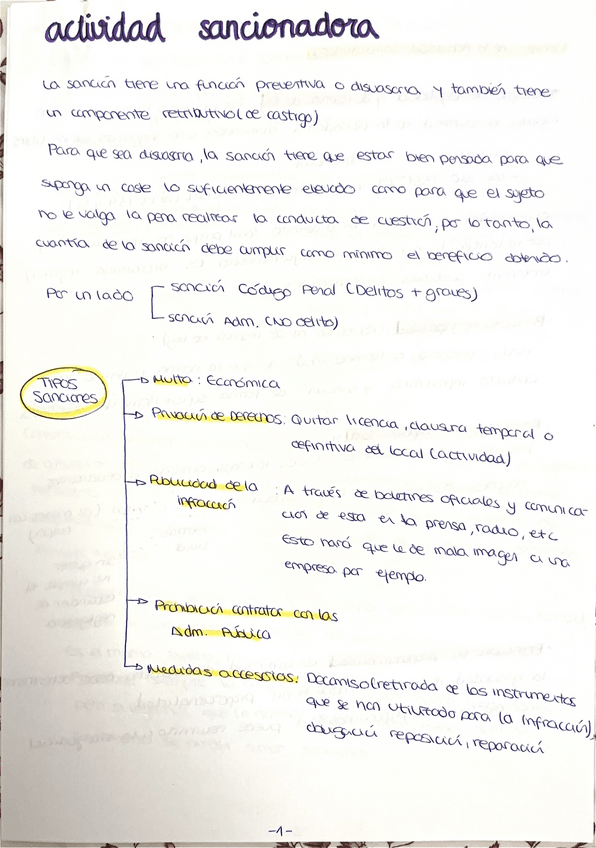 actividad sancionadora
La sanción tiene una función preventiva o disuasoria y también tiene
un componente retributivo (de castigo)
Para que sea disuasoria, la sanción tiene que estar bien pensada para que
suponga un coste lo suficientemente elevado como para que el sujeto
no le valga la pena realizar la conducta de cuestión, por lo tanto, la
cuantía de la sanción debe cumplir como mínimo el beneficio obtenido.
Por un lado
sanción Código Penal (Delitos + graves)
sanción Adm. (No delito)
TIPOS
sanciones
Multa: Económica
Privación de Derechos: Quitar licencia, clausura temporal o
definitiva del local (actividad)
Publicidad de la
infracción
: A través de boletines oficiales y comunica-
ción de esta en la prensa, radio, etc
Esto hará que le de mala imagen a una
empresa por ejemplo.
Prohibición contratar con las
Adm. Pública
Medidas accesorias: Decomiso (retirada de los instrumentos
que se han utilizado para la infracción),
obligación reposición, reparación
-1-